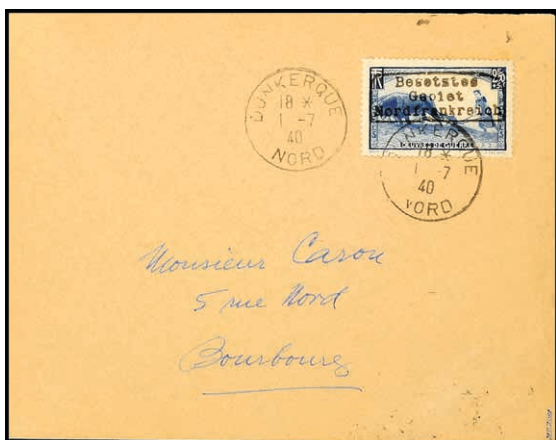 DUNKERQUE
18 *
1 -7
40
NORD
Besetztes
Gebiet
Nordfrankreich
OEUVRES DE GUERRE
DUNKERQUE
18 *
1 -7
40
NORD
Monsieur Caron
5 rue Nord
Bourbourg